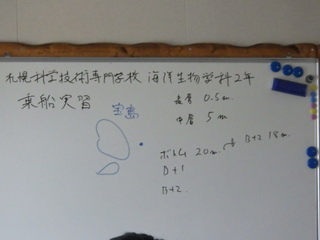 札幌科学技術専門学校 海洋生物学科2年
乗船実習
宝島
表層 0.5m
中層 5m
ボトム 20m → B+2 18m
B+1
B+2